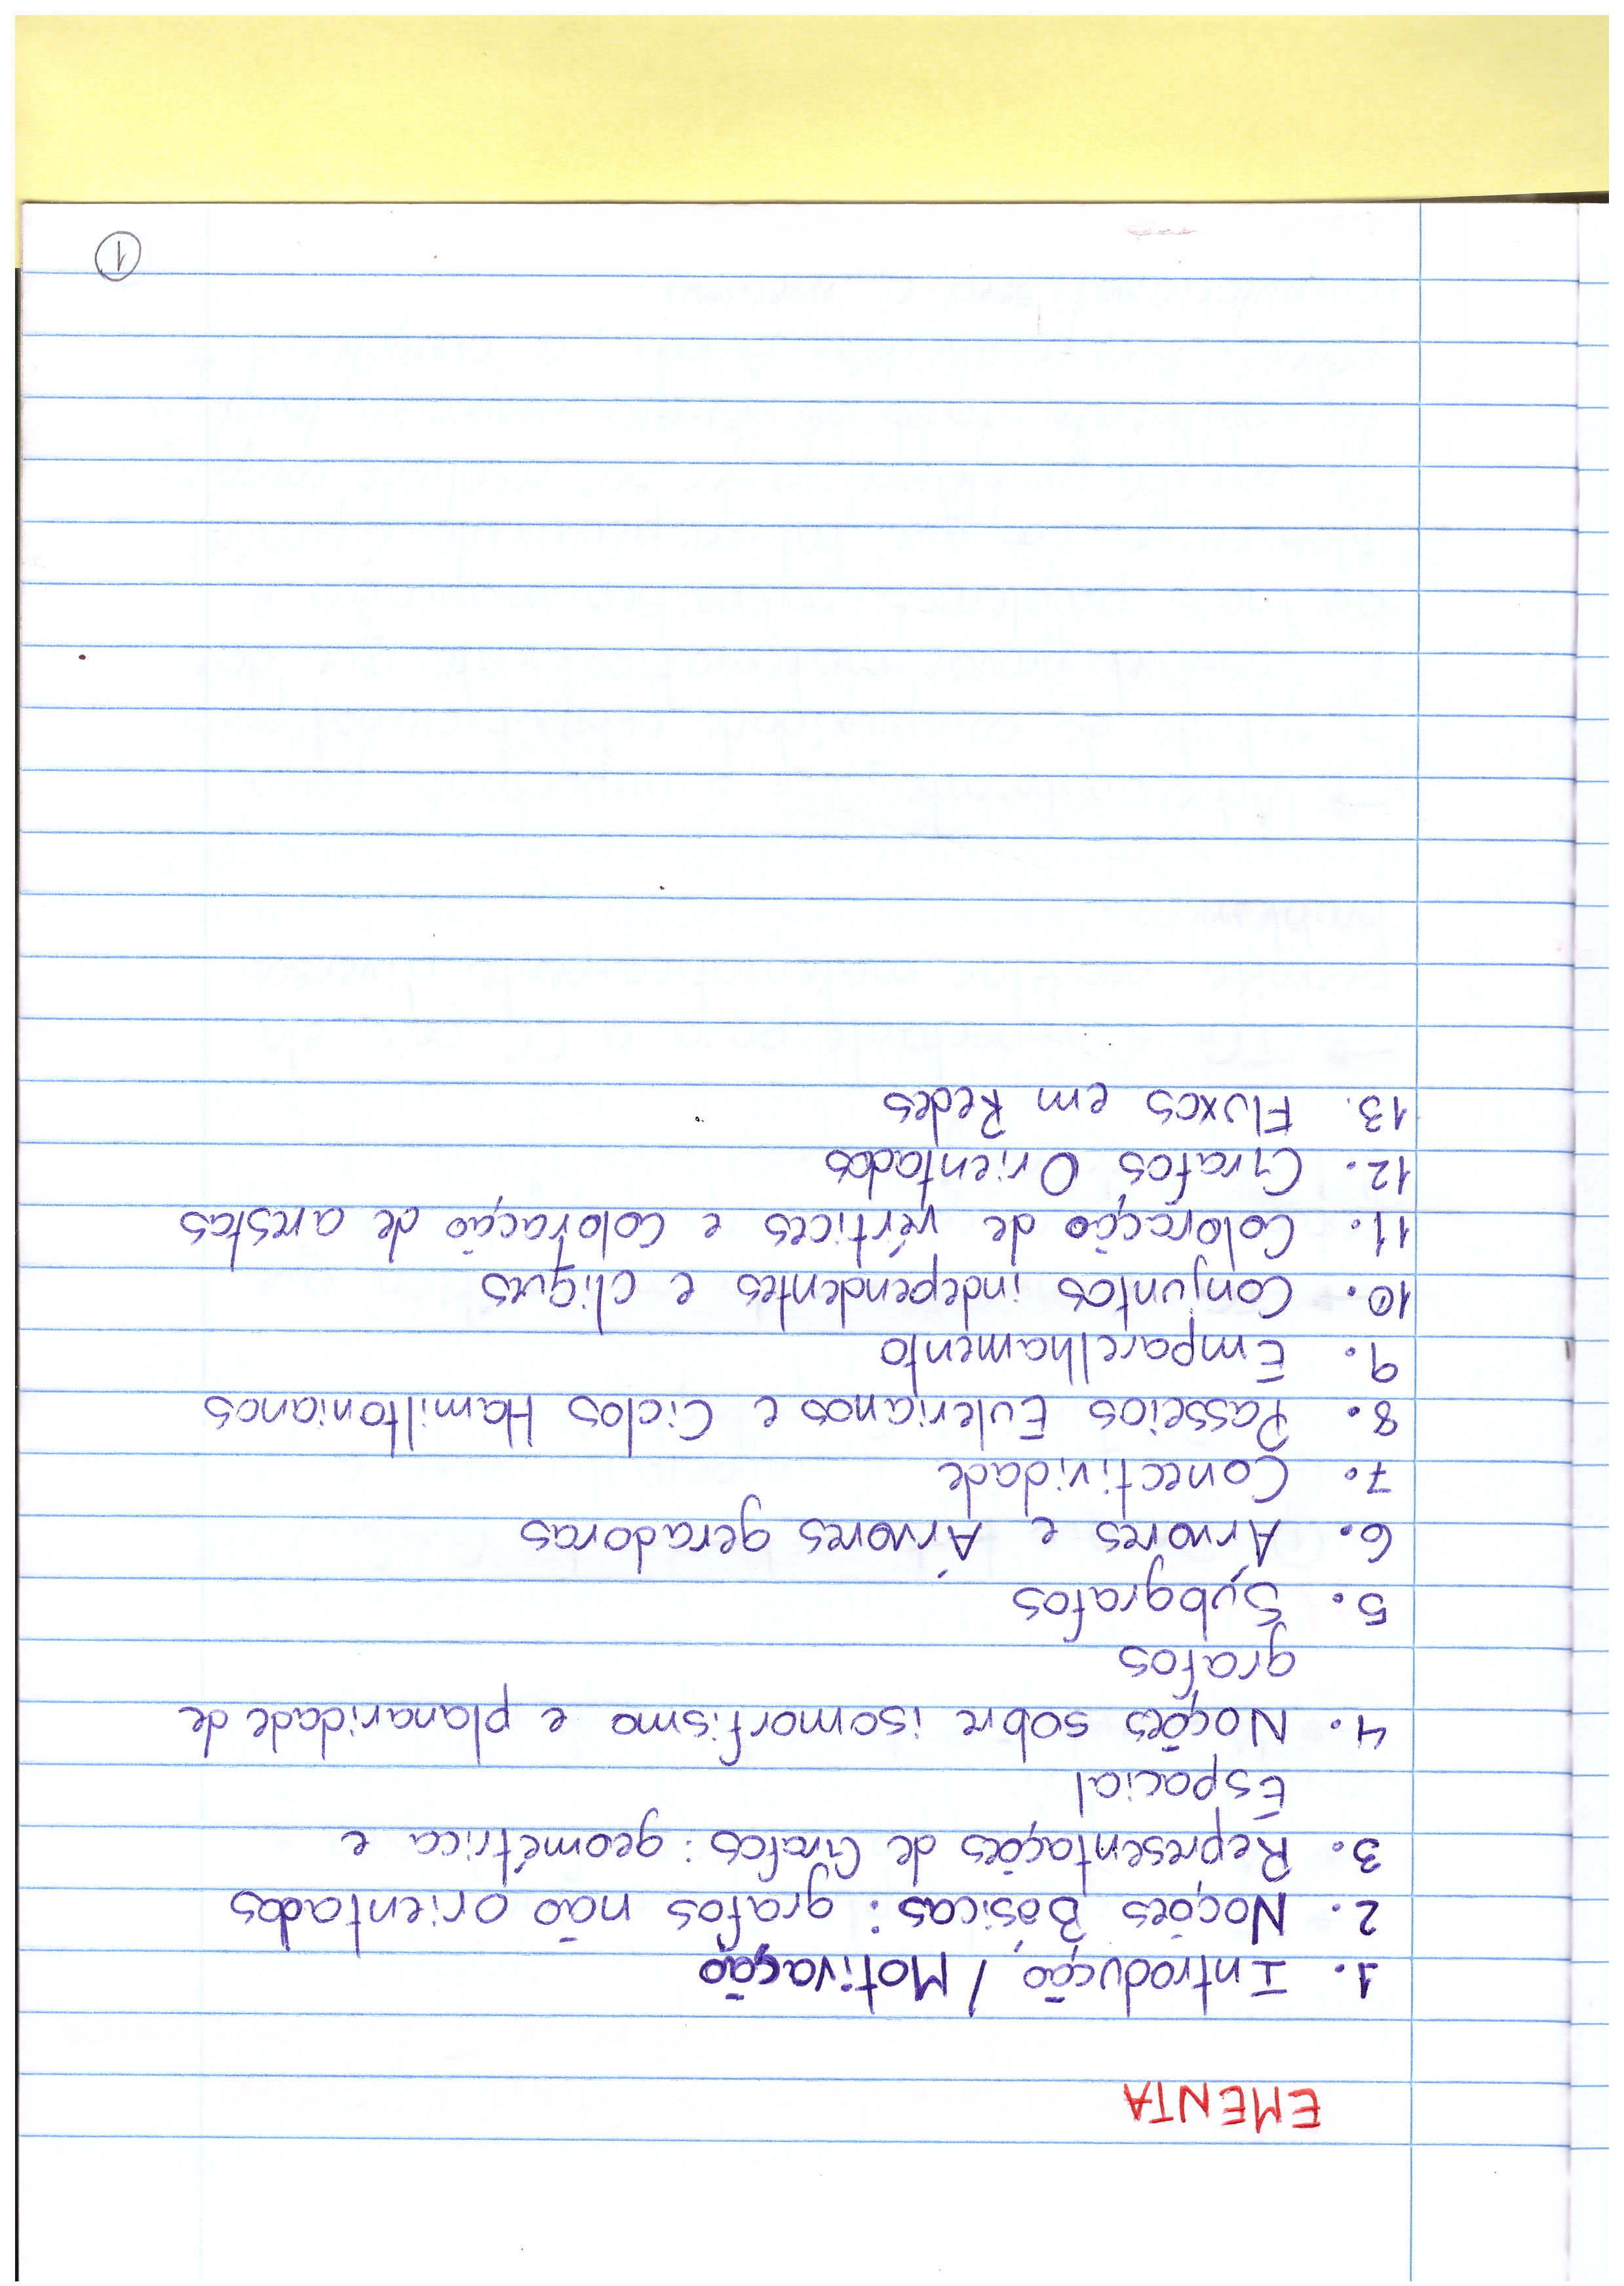 EMENTA
1. Introdução / Motivação
2. Noções Básicas: grafos não orientados
3. Representações de Grafos: geométrica e
Espacial
4. Noções sobre isomorfismo e planaridade de
grafos
5. Subgrafos
6. Árvores e Árvores geradoras
7. Conectividade
8. Passeios Eulerianos e Ciclos Hamiltonianos
9. Emparelhamento
10. Conjuntos independentes e cliques
11. Coloração de vértices e coloração de arestas
12. Grafos Orientados
13. Fluxos em Redes
1